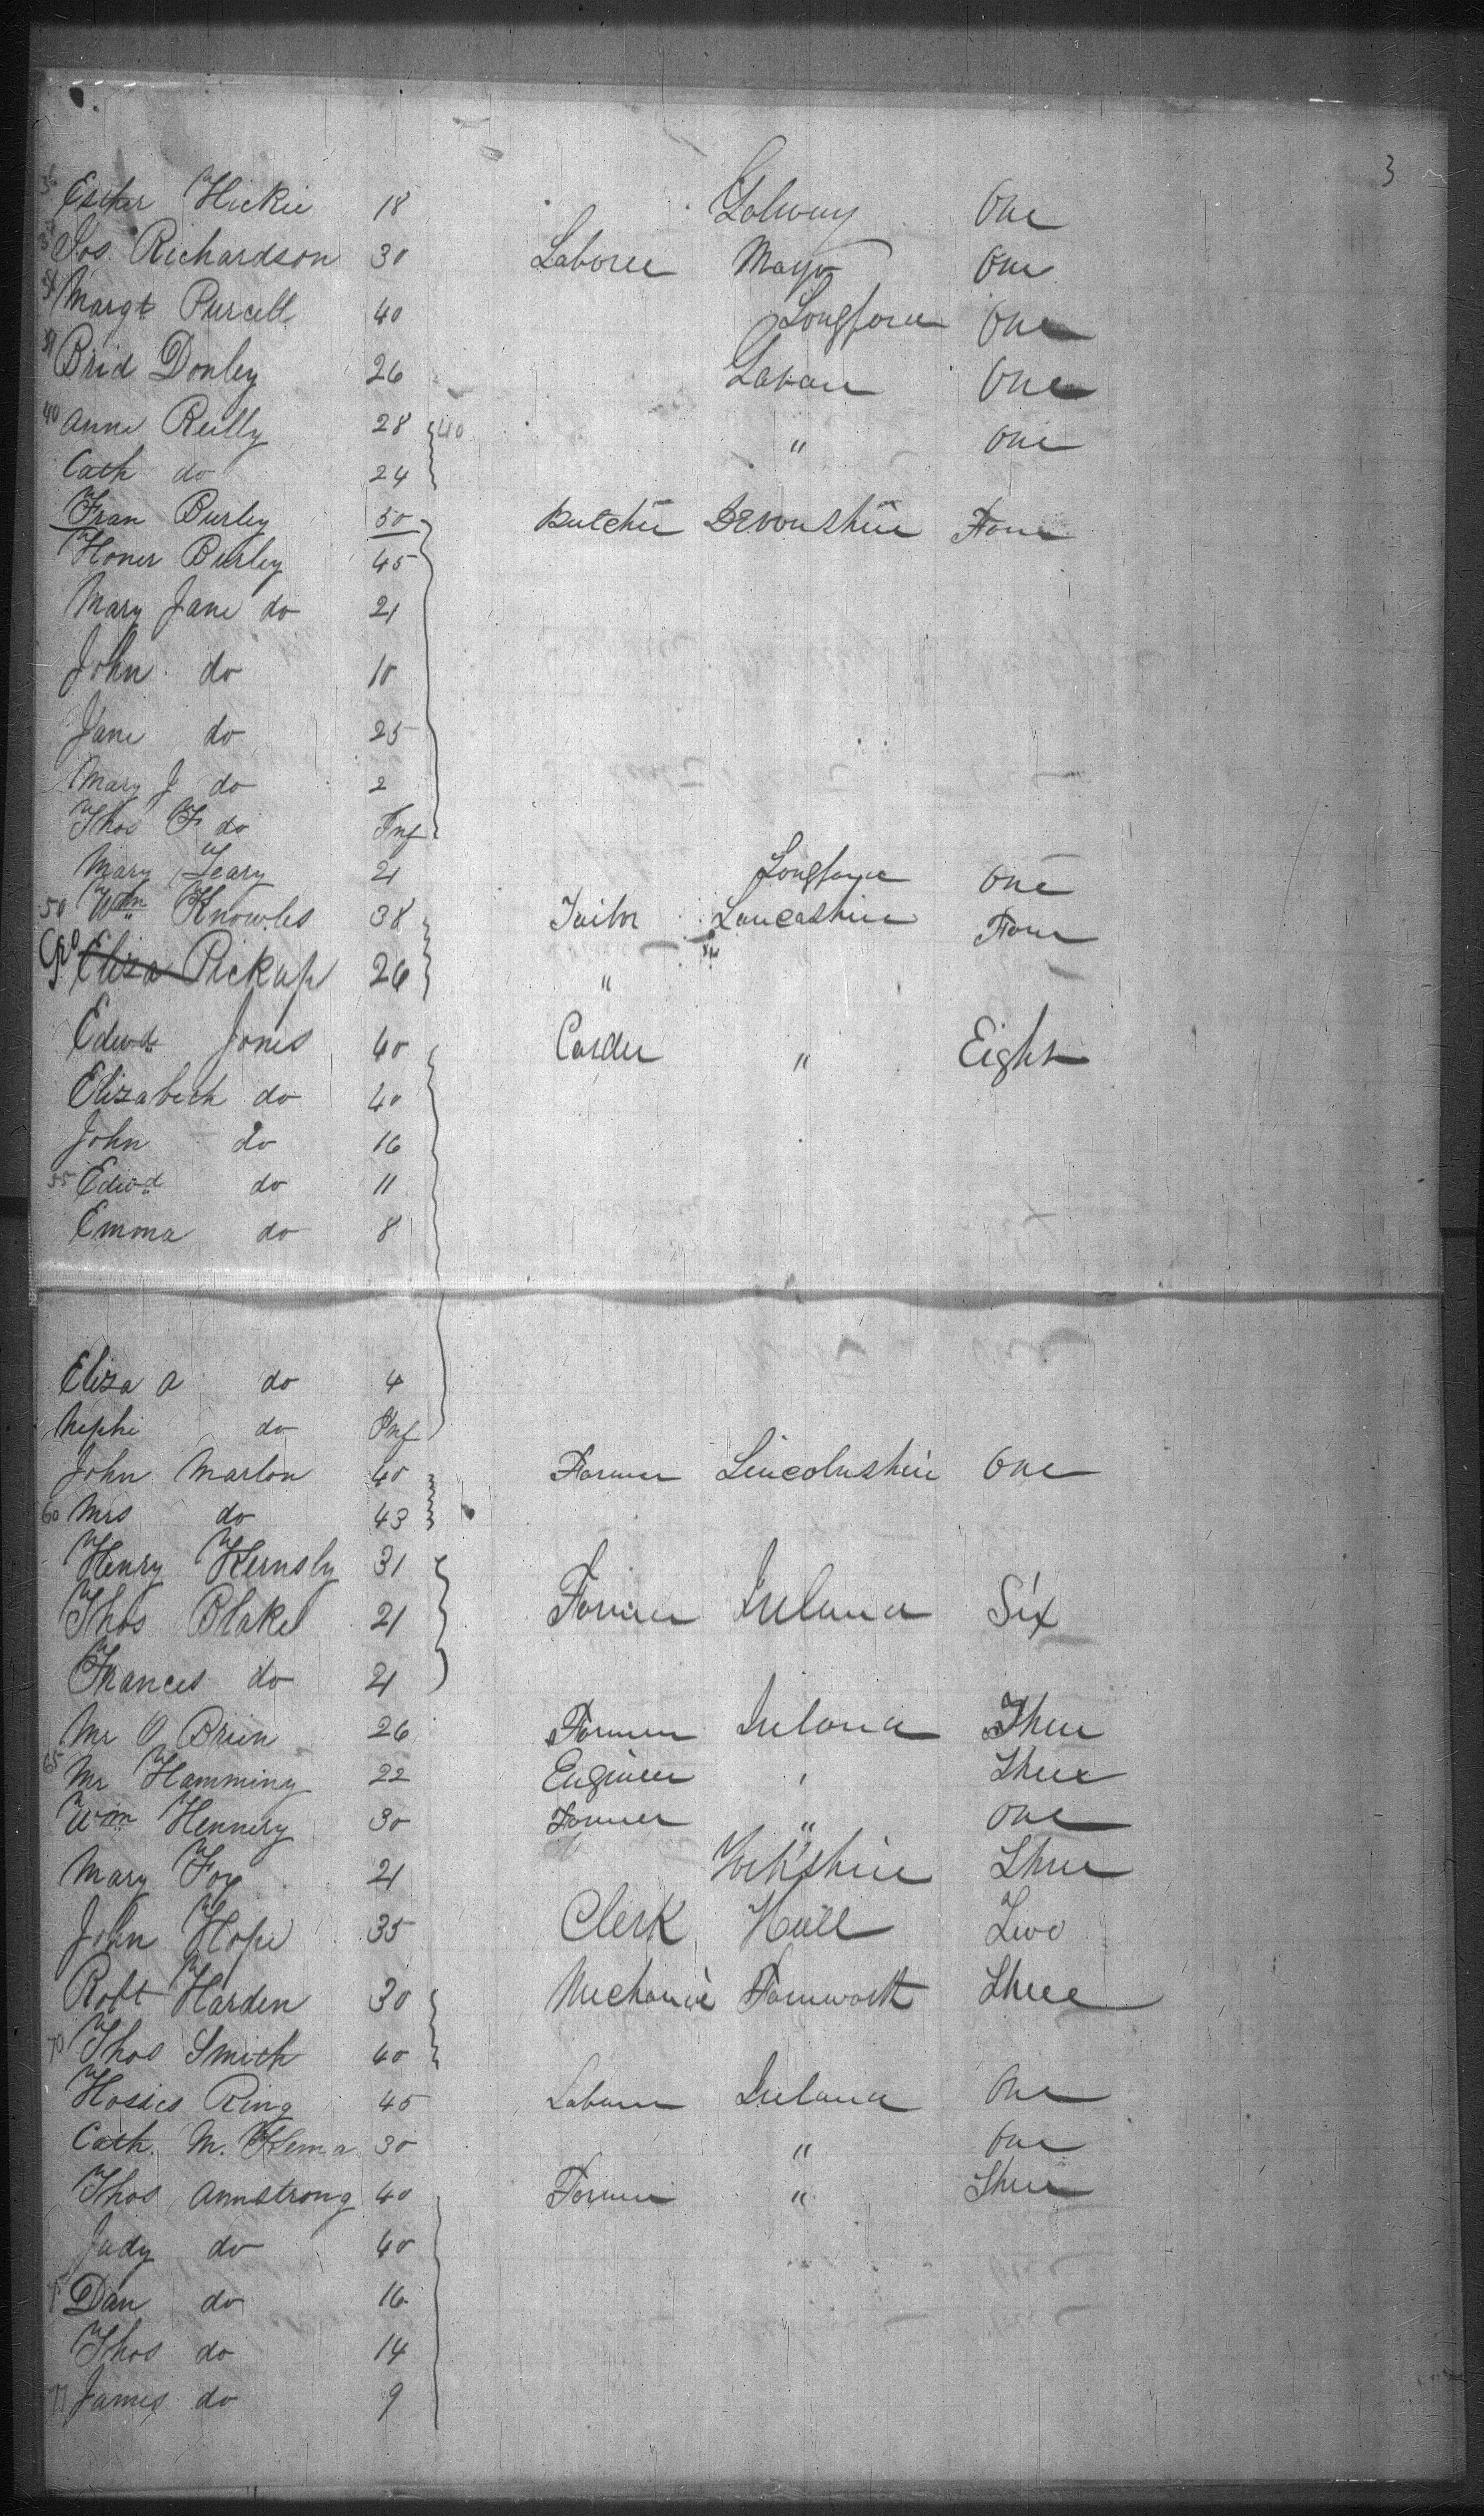 3
36 Esther Hickie 18 Galway One
Jos. Richardson 30 Laborer Mayo One
38 Margt Purcell 40 Longford One
39 Brid Donley 26 Cavan One
40 Anne Reilly 28 40 " One
Cath do 24
Fran Burley 50 Butcher Devonshire Four
Honer Burley 45
Mary Jane do 21
John do 10
Jane do 25
Mary J do 2
Thos F do Inf
Mary Leary 21 Longford One
50 Wm Knowles 38 Tailor Lancashire Four
Geo Eliza Pickup 26 "
Edwd Jones 40 Carder " Eight
Elizabeth do 40
John do 16
55 Edwd do 11
Emma do 8
Eliza A do 4
Nephi do Inf
John Marlon 40 Farmer Lincolnshire One
60 Mrs do 43
Henry Hernsby 31
Thos Blake 21 Farmer Ireland Six
Frances do 21
Mr O Brien 26 Farmer Ireland Three
65 Mr Hamming 22 Engineer " Three
Wm Hennery 30 Farmer " One
Mary Fox 21 Yorkshire Three
John Hope 35 Clerk Hull Two
Robt Harden 30 Mechanic Farnworth Three
70 Thos Smith 40
Hosies Ring 45 Laborer Ireland One
Cath. M. Kema 30 " One
Thos Armstrong 40 Farmer " Three
Judy do 40
Dan do 16
Thos do 14
77 James do 9